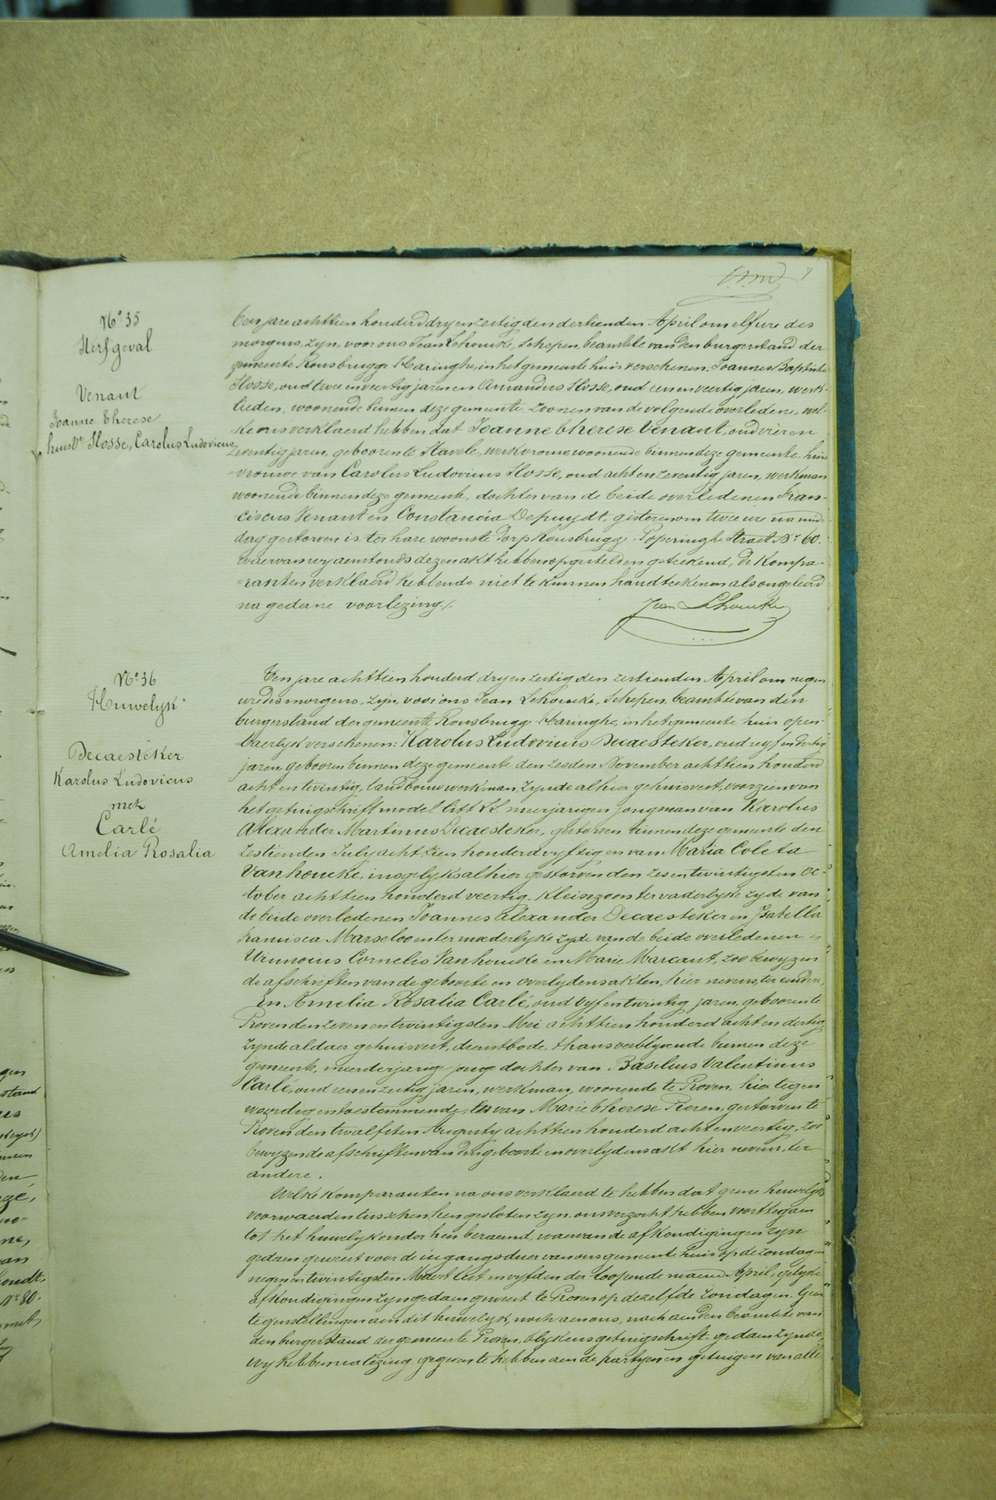 N° 35
Sterfgeval
Venant
Joanne Therese
huisv. Hosse, Carolus Ludovicus
Een jare achttien honderd dry en zestig den dertienden April om elf ure des
morgens, zyn, voor ons Jean Lehoucke, Schepen, beambte van den burgerstand der
gemeente Rousbrugge Haringhe, in het gemeente huis verschenen, Joannes Baptiste
Hosse, oud twee en veertig jaren en Amandus Hosse, oud een en veertig jaren, werk-
lieden, woonende binnen deze gemeente zoonen van de volgende overledene, wel-
ke ons verklaerd hebben dat Joanne Therese Venant, oud vier en
zeventig jaren, geboren te Stavele, werkvrouw woonende binnen deze gemeente huis-
vrouwe van Carolus Ludovicus Hosse, oud acht en zeventig jaren, werkman
woonende binnen deze gemeente, dochter van de beide overledenen Fran-
ciscus Venant en Constancia Depuydt, gisteren om twee ure na mid-
dag gestorven is ter hare woonste Dorp Rousbrugge Poperinghe Straet N° 60.
waervan wy aenstonds dezen akt hebben opgesteld en geteekend, de Kompa-
ranten verklaerd hebbende niet te kunnen handteekenen als ongeleerd
na gedane voorlezing.
Jean Lehoucke
N° 36
Huwelyk
Decaesteker
Karolus Ludovicus
met
Carlé
Amelia Rosalia
Een jare achttien honderd dry en zestig den zestienden April om negen
ure des morgens, zyn, voor ons Jean Lehoucke, Schepen, beambte van den
burgerstand der gemeente Rousbrugge Haringhe, in het gemeente huis open-
baerlyk verschenen: Karolus Ludovicus Decaesteker, oud vyf en dertig
jaren geboren binnen deze gemeente den zesden November achttien honderd
acht en twintig, landbouw werkman zynde alhier gehuisvest, voorzien van
het getuigschrift model litt. meerjarigen jongman van Karolus
Alexander Martinus Decaesteker, gestorven binnen deze gemeente den
zestienden July acht tien honderd vyftig en van Maria Coleta
Vanhoucke, insgelyks alhier gestorven den zes en twintigsten Oc-
tober achttien honderd veertig, kleinzoon ter vaderlyke zyde van
de beide overledenen Joannes Alexander Decaesteker en Isabella
Francisca Marseloo en ter moederlyke zyde van de beide overledenen
Cornelis Vanhoucke en Marie Marcant, zoo bewyzen
de afschriften van de geboorte en overlydens akten, hier nevens, ter andere,
En Amelia Rosalia Carlé, oud vyf en twintig jaren, geboren te
Proven den zeven en twintigsten Mei achttien honderd acht en dertig
zynde aldaer gehuisvest, dienstbode, thans verblyvende binnen deze
gemeente, meerderjarige jonge dochter van Basilius Valentinus
Carlé, oud een en zestig jaren, werkman, woonende te Proven, hier tegen
woordig en toestemmende, en van Marie Therese Peren, gestorven te
Proven den twalfsten Augusty achttien honderd acht en veertig, zoo
bewyzen de afschriften van de geboorte en overlydens akt hier nevens, ter
andere.
Welke komparanten na ons verklaerd te hebben dat geene huwelyks
voorwaerden tusschen hen gesloten zyn, ons verzocht hebben voort te gaen
tot het huwelyk onder hen beraemd, waervan de afkondigingen zyn
gedaen geweest voor de ingangsdeur van ons gemeente huis op de zondagen
negen en twintigsten Maert lest en vyfden der loopende maend April, gelyke
afkondigingen zyn gedaen geweest te Proven op dezelfde zondagen. Geen
tegenstellingen aen dit huwelyk, noch aen ons, noch aen den beambte van
den burgerstand der gemeente Proven, blykens getuigschrift gedaen zynde,
wy hebben na lezing gegeven te hebben aen de partyen en getuigen van alle